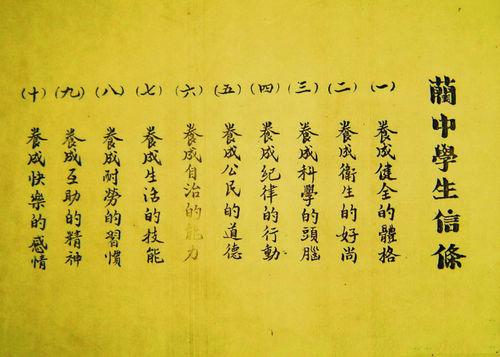 蘭中學生信條
(一) 養成健全的體格
(二) 養成衛生的好尚
(三) 養成科學的頭腦
(四) 養成紀律的行動
(五) 養成公民的道德
(六) 養成自治的能力
(七) 養成生活的技能
(八) 養成耐勞的習慣
(九) 養成互助的精神
(十) 養成快樂的感情